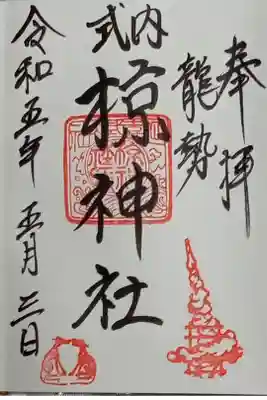 奉拝
龍勢
式内
椋神社
令和五年 五月三日